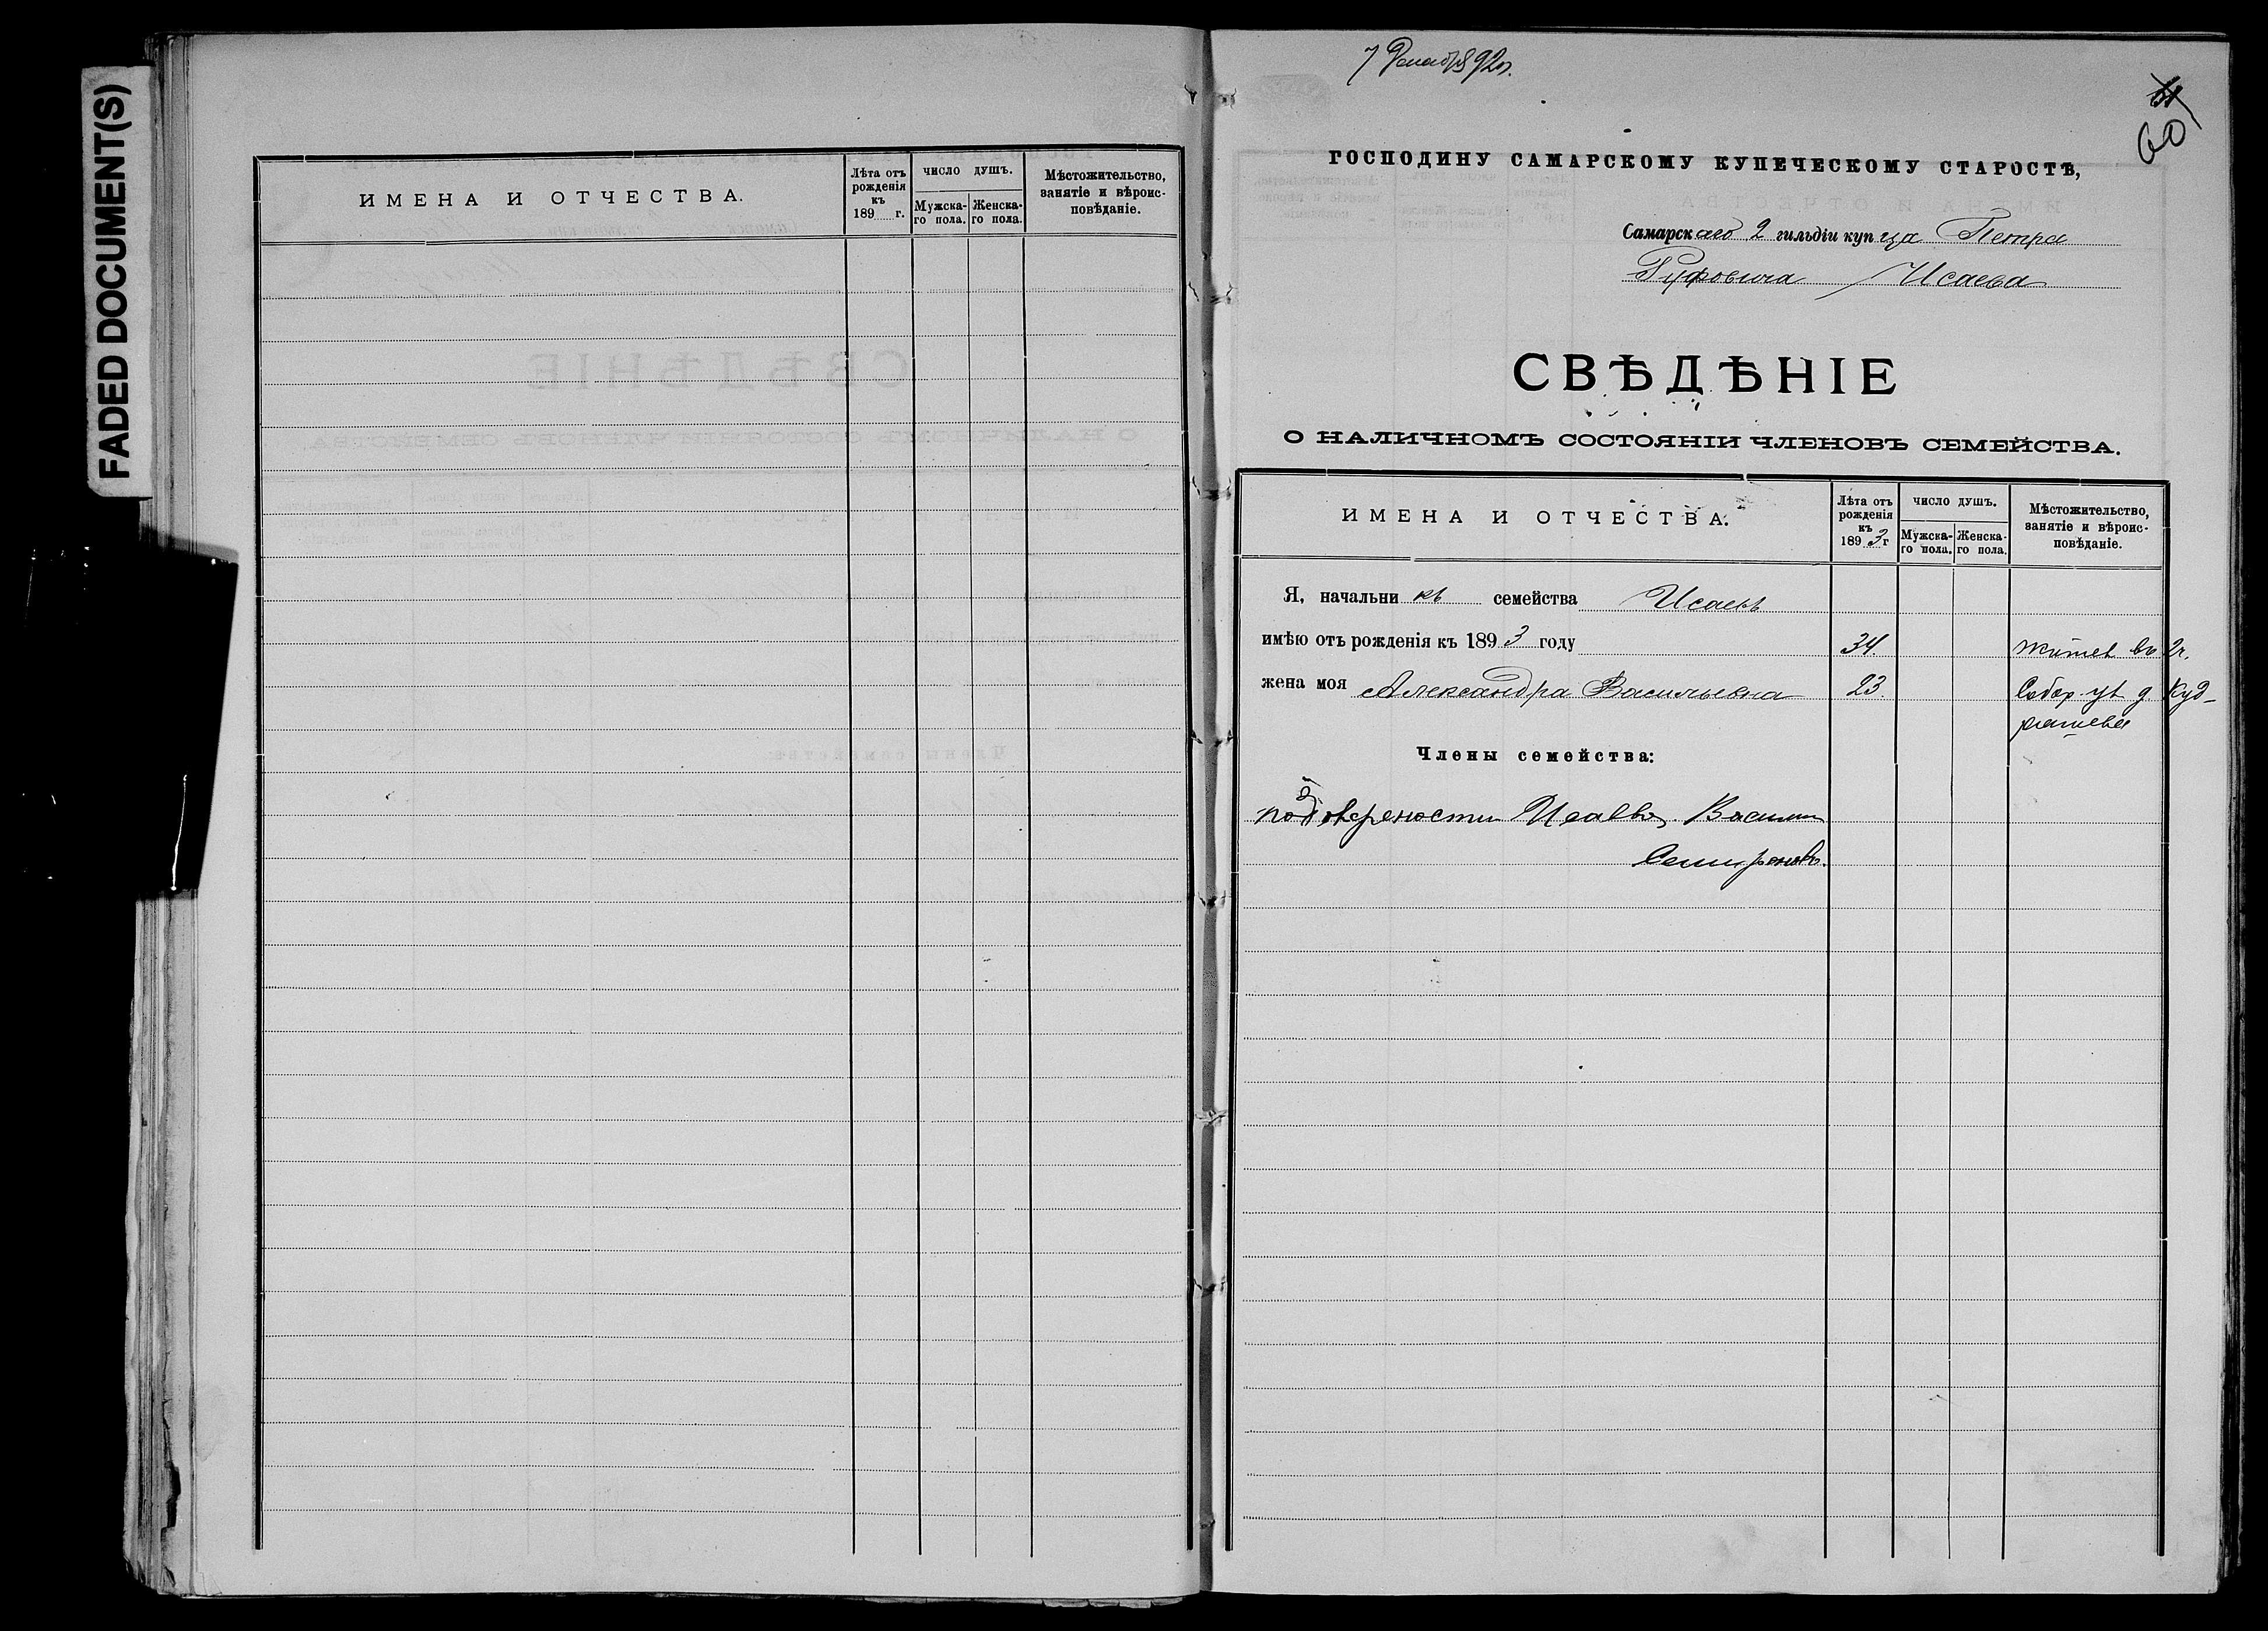 FADED DOCUMENT(S)
ИМЕНА И ОТЧЕСТВА.
Лѣта отъ рожденія къ 189 г.
ЧИСЛО ДУШЪ.
Мужска-го пола.
Женска-го пола.
Мѣстожительство, занятіе и вѣроис-повѣданіе.
7 Декаб 1892 г.
60
ГОСПОДИНУ САМАРСКОМУ КУПЕЧЕСКОМУ СТАРОСТѢ,
Самарскаго 2 гильдіи купца Петра
Руфовича Исаева
СВѢДѢНІЕ
О НАЛИЧНОМЪ СОСТОЯНІИ ЧЛЕНОВЪ СЕМЕЙСТВА.
ИМЕНА И ОТЧЕСТВА.
Лѣта отъ рожденія къ 1893 г
ЧИСЛО ДУШЪ.
Мужска-го пола.
Женска-го пола.
Мѣстожительство, занятіе и вѣроис-повѣданіе.
Я, начальникъ семейства Исаевъ
имѣю отъ рожденія къ 1893 году 34 въ 2 ч.
жена моя Александра Васильевна 23 Собор. ул д. Куд-
ряшева
Члены семейства:
по довѣрености Исаева Василий